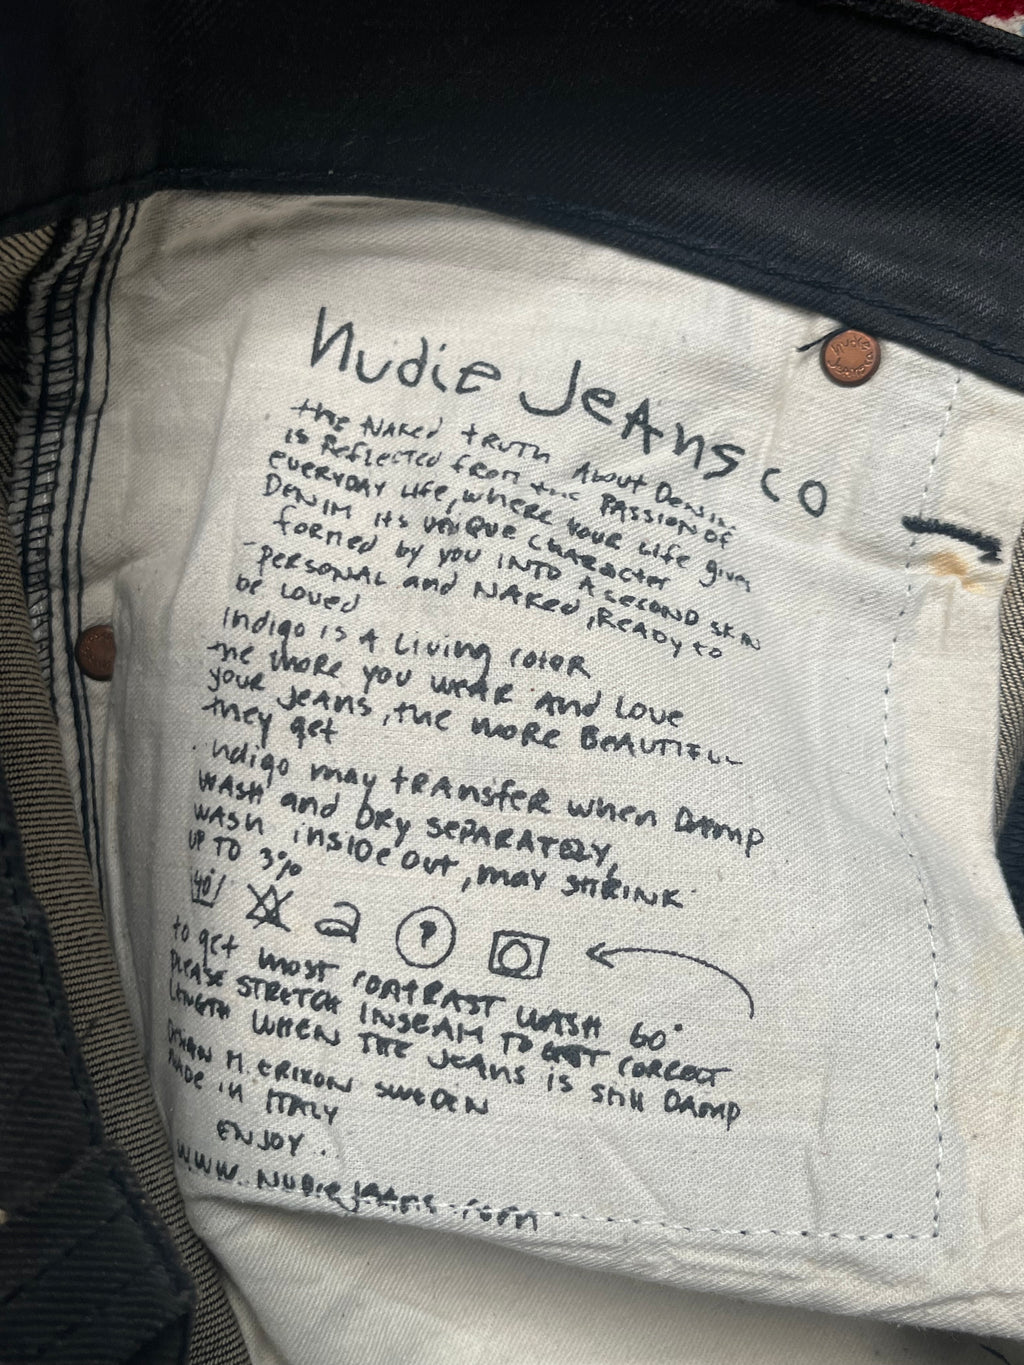 Nudie Jeans co
the NAKed tRUTh About Denim
is ReflecteD from the PASSION of
eveRYDAY Life, where YOUR Life gives
DENIM its UNIQUE CHARActer
formed by you INTO A SECOND SKIN
-PERSONAL and NAKed, READY to
be Loved
Indigo is A Living coloR
the more you WEAR And Love
youR JeAns, the moRe BeAUTIFUL
they get
Indigo may tRAnsfeR when DAmp
WASH and DRY SEPARATELY,
WASH INSIDE OUT, MAY SHRINK
UP TO 3%
40°
P
to get most CONTRAST WASH 60°
PLEASE STRETCH INSEAM TO GET CORRECT
LENGTH WHEN THE JEANS is still DAMP
DESIGN M. ERIXON SWEDEN
MADE IN ITALY
ENJOY.
WWW.NudieJeans.com
nudie
Jeans